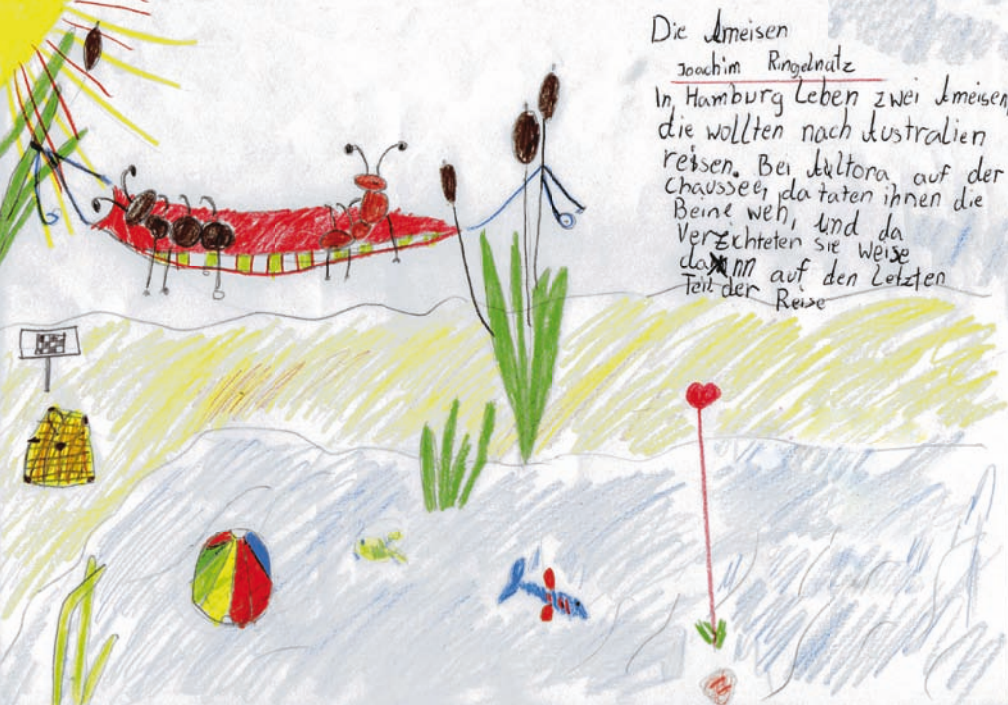 Die Ameisen
Joachim Ringelnatz
In Hamburg Leben zwei Ameisen,
die wollten nach Australien
reisen. Bei Aultona auf der
Chaussee, da taten ihnen die
Beine weh, und da
Verzichteten sie weise
dann auf den Letzten
Teil der Reise